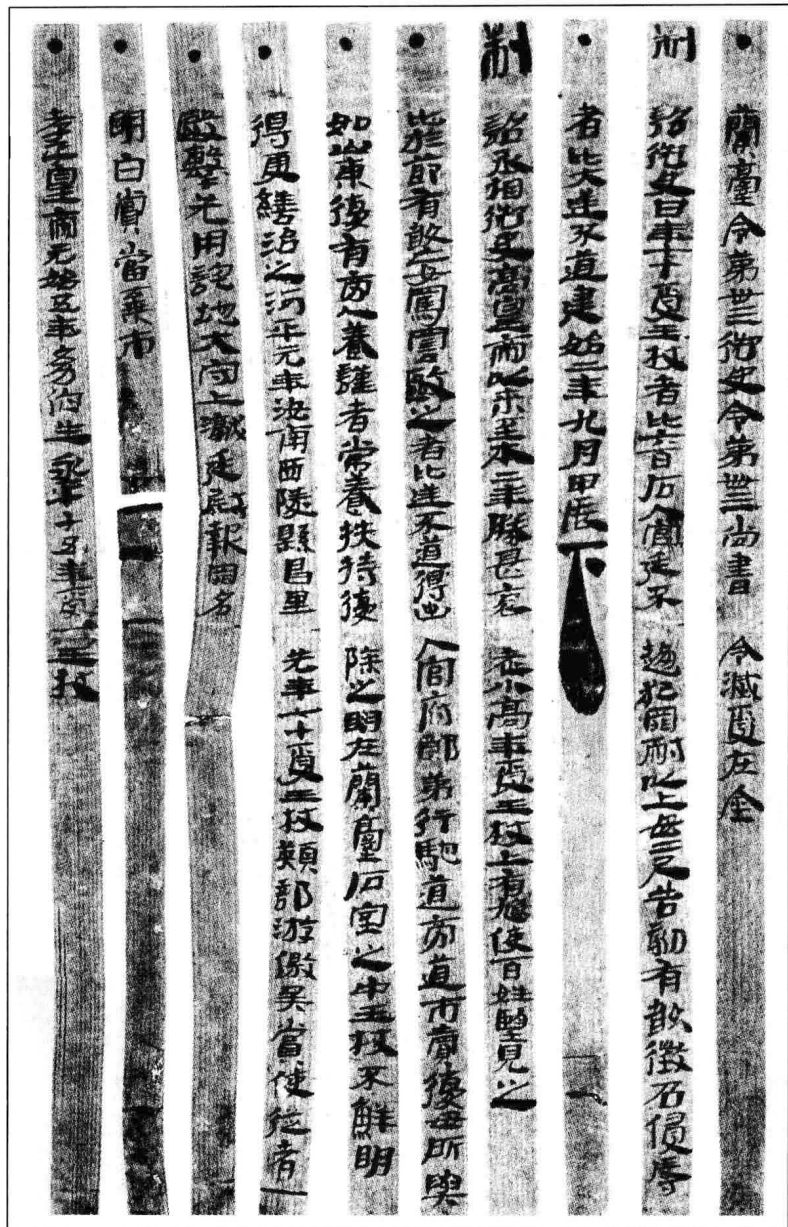 ●蘭臺令第卅三御史令第卌三尚書令滅受在金
制 詔御史曰年七十受王杖者比六百石入官廷不趨犯罪耐以上毋二尺告劾有敢徵召侵辱
●者比大逆不道建始二年九月甲辰下
制 詔丞相御史高皇帝以來至本二年勝甚哀老小高年受王杖上有鳩使百姓望見之
●比於節有敢妄罵詈毆之者比逆不道得出入官府郎第行馳道旁道市賣復毋所與
●如山東復有旁人養謹者常養扶持復除之明在蘭臺石室之中王杖不鮮明
●得更繕治之河平元年汝南西陵縣昌里先年七十受王杖熲部游徼吳賞使從者
●毆擊先用詫地大守上讞廷尉報罪名
●明白賞當棄市
●孝平皇帝元始五年幼伯生永平十五年受王杖